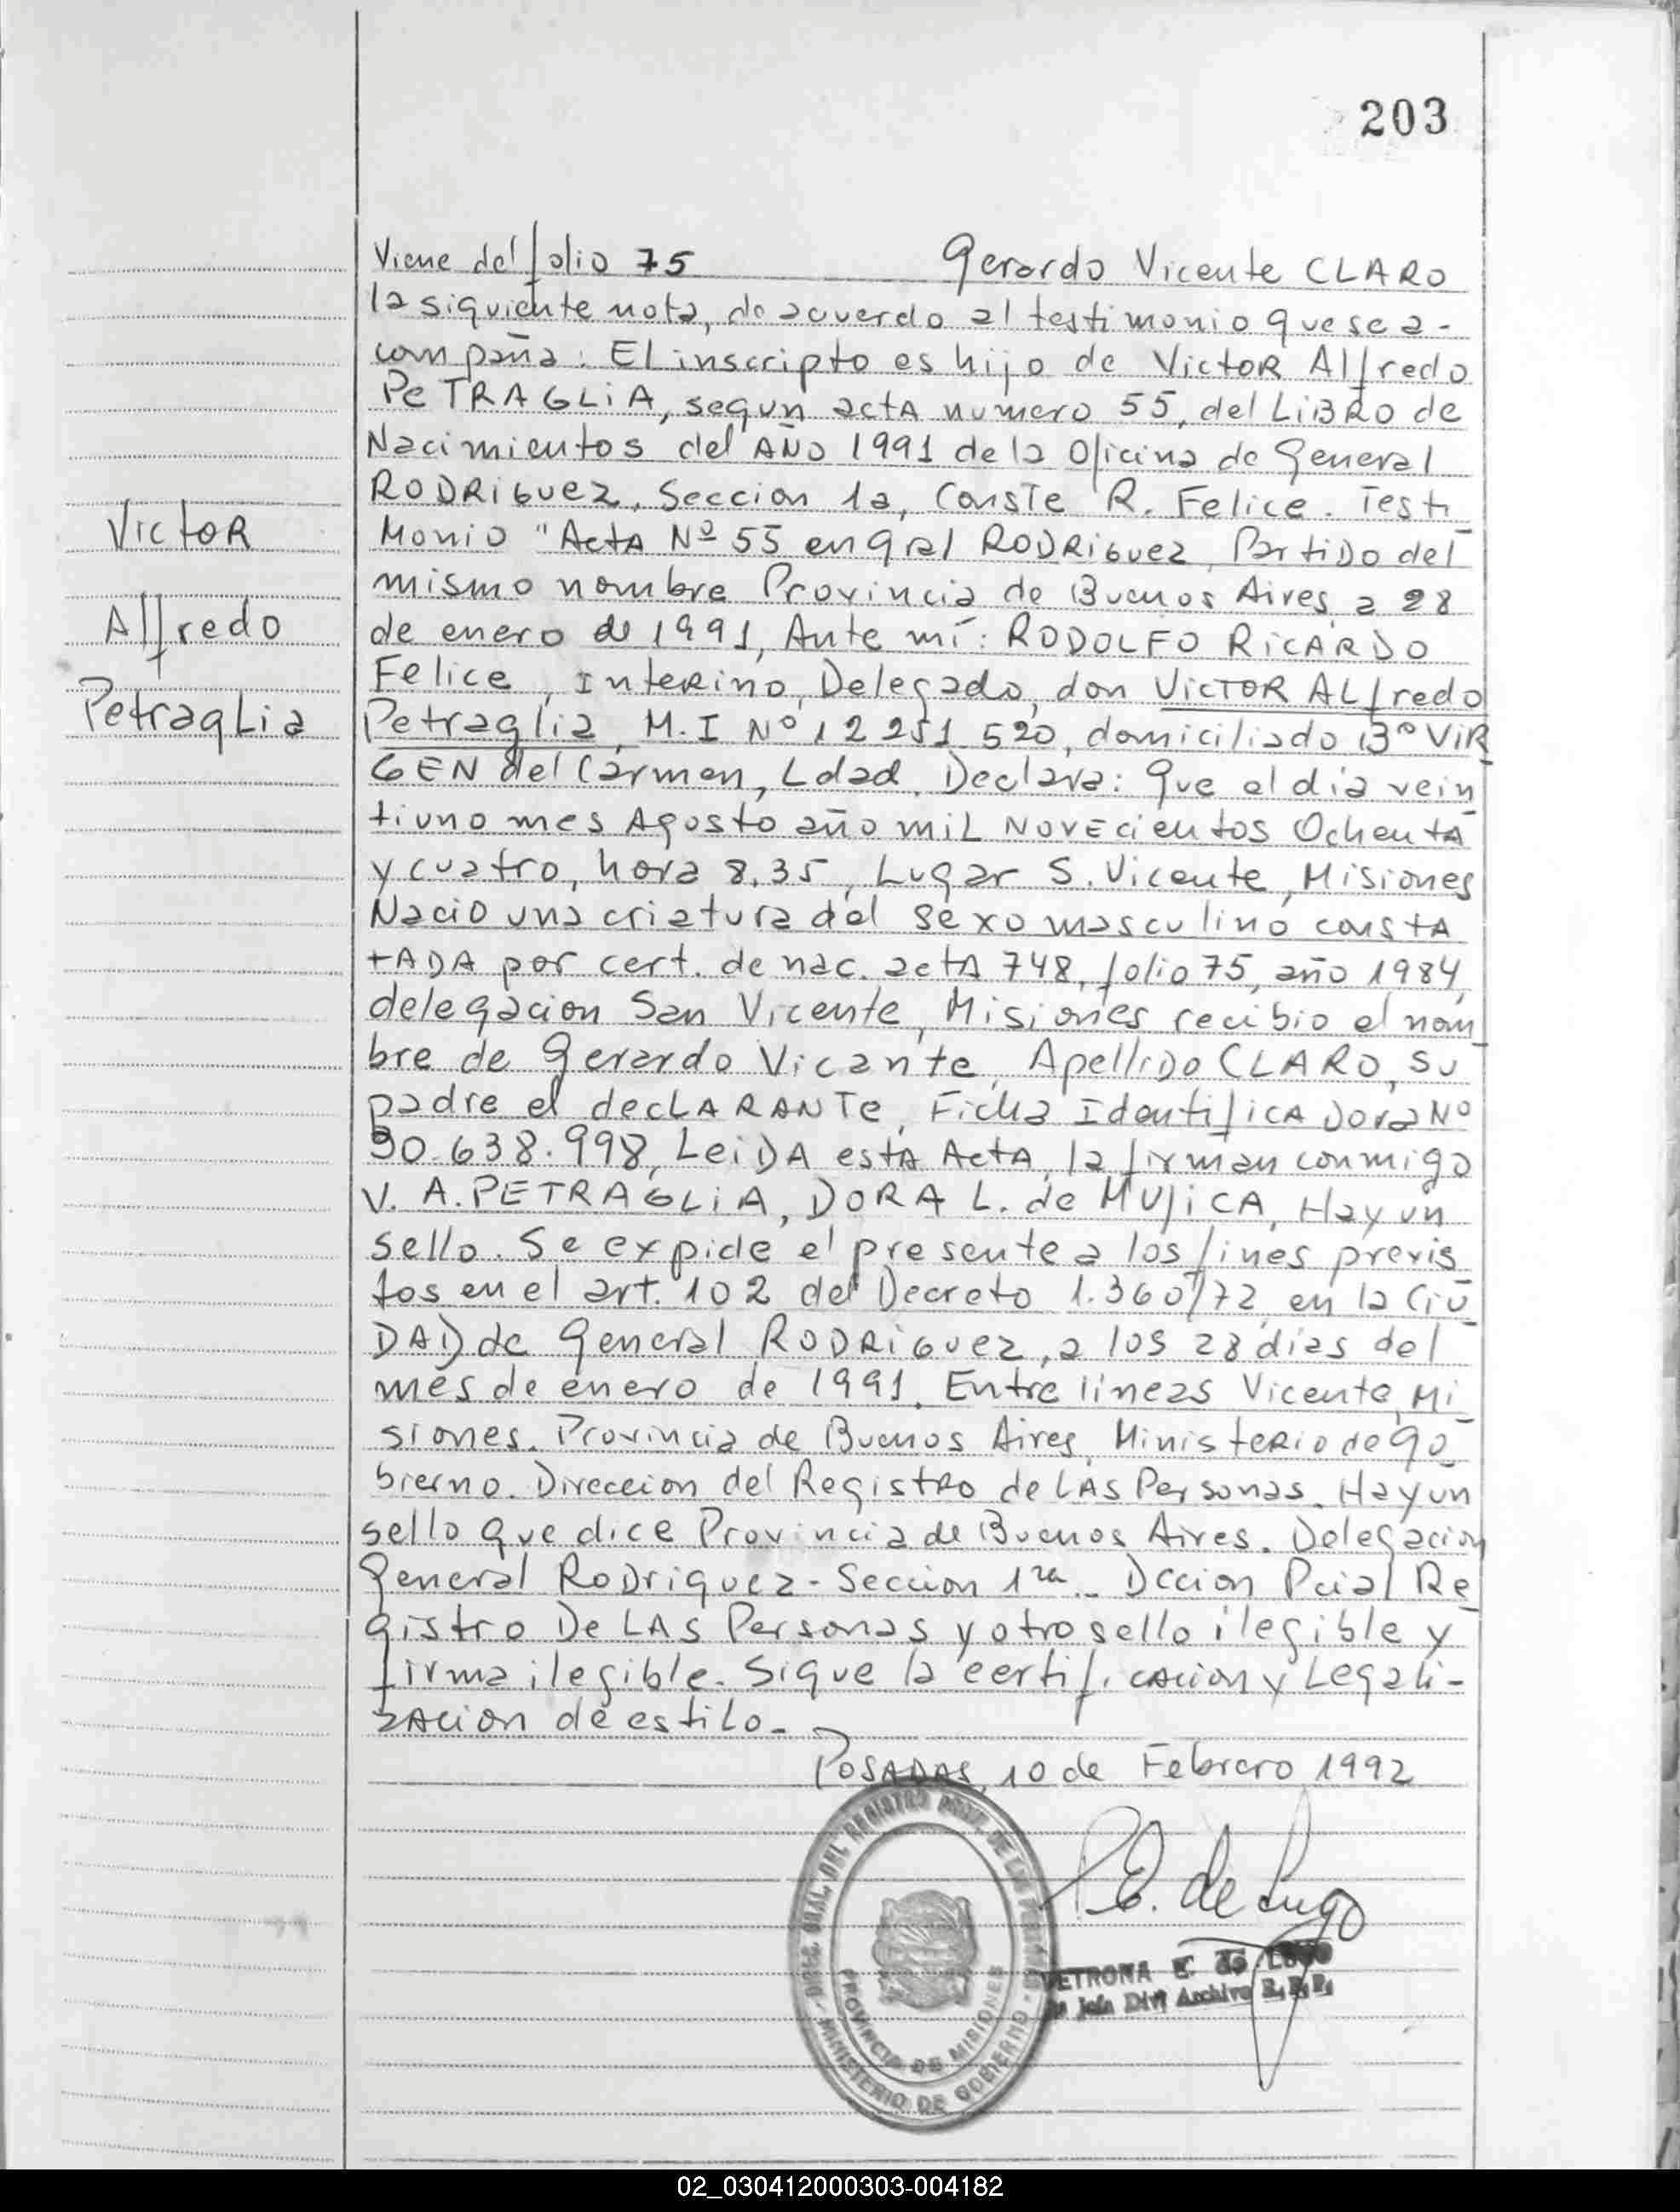 203
Viene del folio 75 Gerardo Vicente CLARO
la siguiente nota, de acuerdo al testimonio que se a-
compaña: El inscripto es hijo de VictoR Alfredo
PeTRAGLiA, segun actA numero 55, del LiBRO de
Nacimientos del AÑO 1991 de la Oficina de General
RODRiGuez, Seccion 1a, ConsTe R. Felice. Testi
Monio "ActA Nº 55 en gral RODRiGuez, PartiDo del
mismo nombre Provincia de Buenos Aires, a 28
de enero de 1991, Ante mí: RODOLFO RiCARDO
Felice, InteRino, Delegado, don VicTOR ALfredo
Petraglia, M.I Nº 12 251 520, domiciliado Bº ViR
GEN del Carmen, Ldad. Declara: Que el dia vein
tiuno mes Agosto año miL NOVEcientos OchentA
y cuatro, hora 8.35, Lugar S. Vicente, Misiones
NaciO una criatura del sexo masculino constA
tADA por cert. de nac. actA 748, folio 75, año 1984,
delegacion San Vicente, Misiones recibio el nom
bre de Gerardo Vicante, ApelliDo CLARO, su
padre el decLARANTe, Ficha IdentificADora Nº
30.638.998, LeiDA estA ActA, la firman conmigo
V. A. PETRAGLiA, DORA L. de MUJiCA, Hay un
sello. Se expide el presente a los fines previs
tos en el art. 102 del Decreto 1.360/72, en la Ciu
DAD de General RODRiGuez, a los 28 dias del
mes de enero de 1991. Entre líneas Vicente, Mi
siones. Provincia de Buenos Aires, MinisteRio de go
bierno. Direccion del RegistRo de LAs Personas. Hay un
sello que dice Provincia de Buenos Aires. Delegacion
General RoDriguez - Seccion 1ra - Dccion Pcial Re
gistro De LAs Personas y otro sello ilegible y
firma ilegible. Sigue la certificAcion y Legali-
zAcion de estiLo-
POSADAS, 10 de Febrero 1992
VictoR
Alfredo
PetragLia
P.E. de Lugo
PETRONA E. de LUGO
Jefa Divi Archivo R.P.P.
DIREC. GRAL. DEL REGISTRO PROV. DE LAS PERSONAS
PROVINCIA DE MISIONES
MINISTERIO DE GOBIERNO
02_030412000303-004182